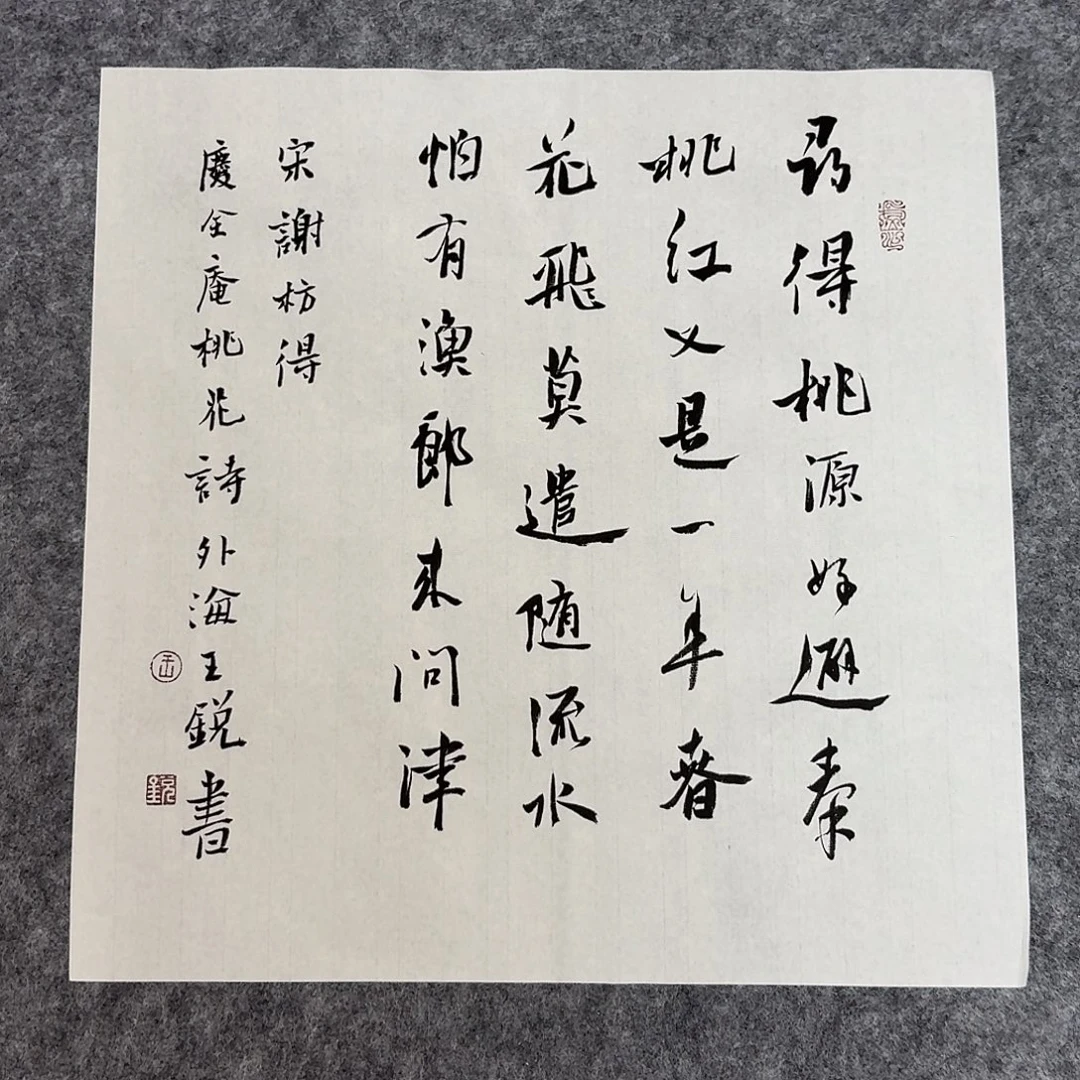 尋得桃源好避秦
桃紅又是一年春
花飛莫遣随流水
怕有漁郎来问津
宋謝枋得
慶全庵桃花詩外海王銳書